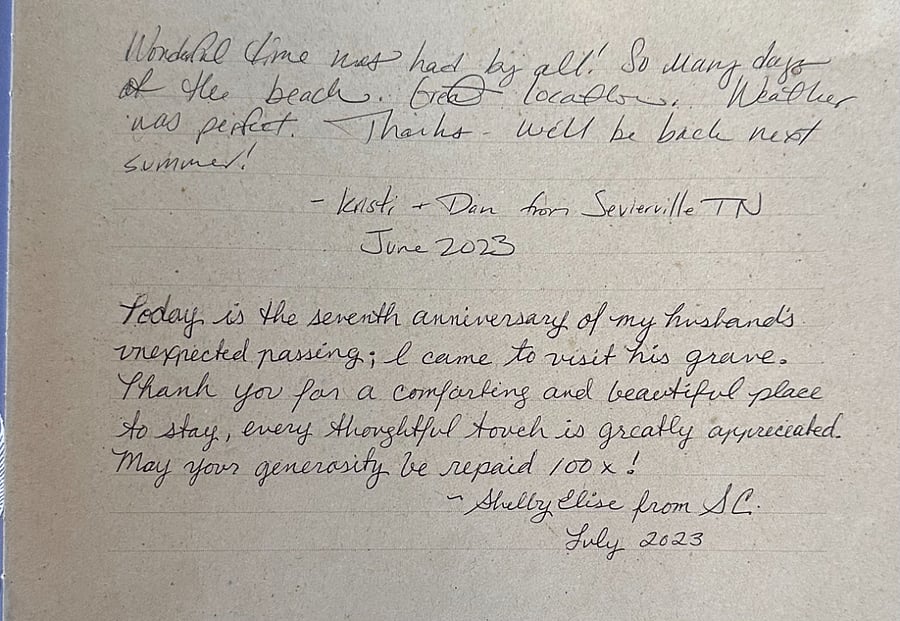 Wonderful time was had by all! So many days
at the beach. Great location. Weather
was perfect. Thanks - we'll be back next
summer!
- Kristi + Dan from Sevierville TN
June 2023
Today is the seventh anniversary of my husband's
unexpected passing; I came to visit his grave.
Thank you for a comforting and beautiful place
to stay, every thoughtful touch is greatly appreciated.
May your generosity be repaid 100x!
~ Shelby Elise from SC.
July 2023